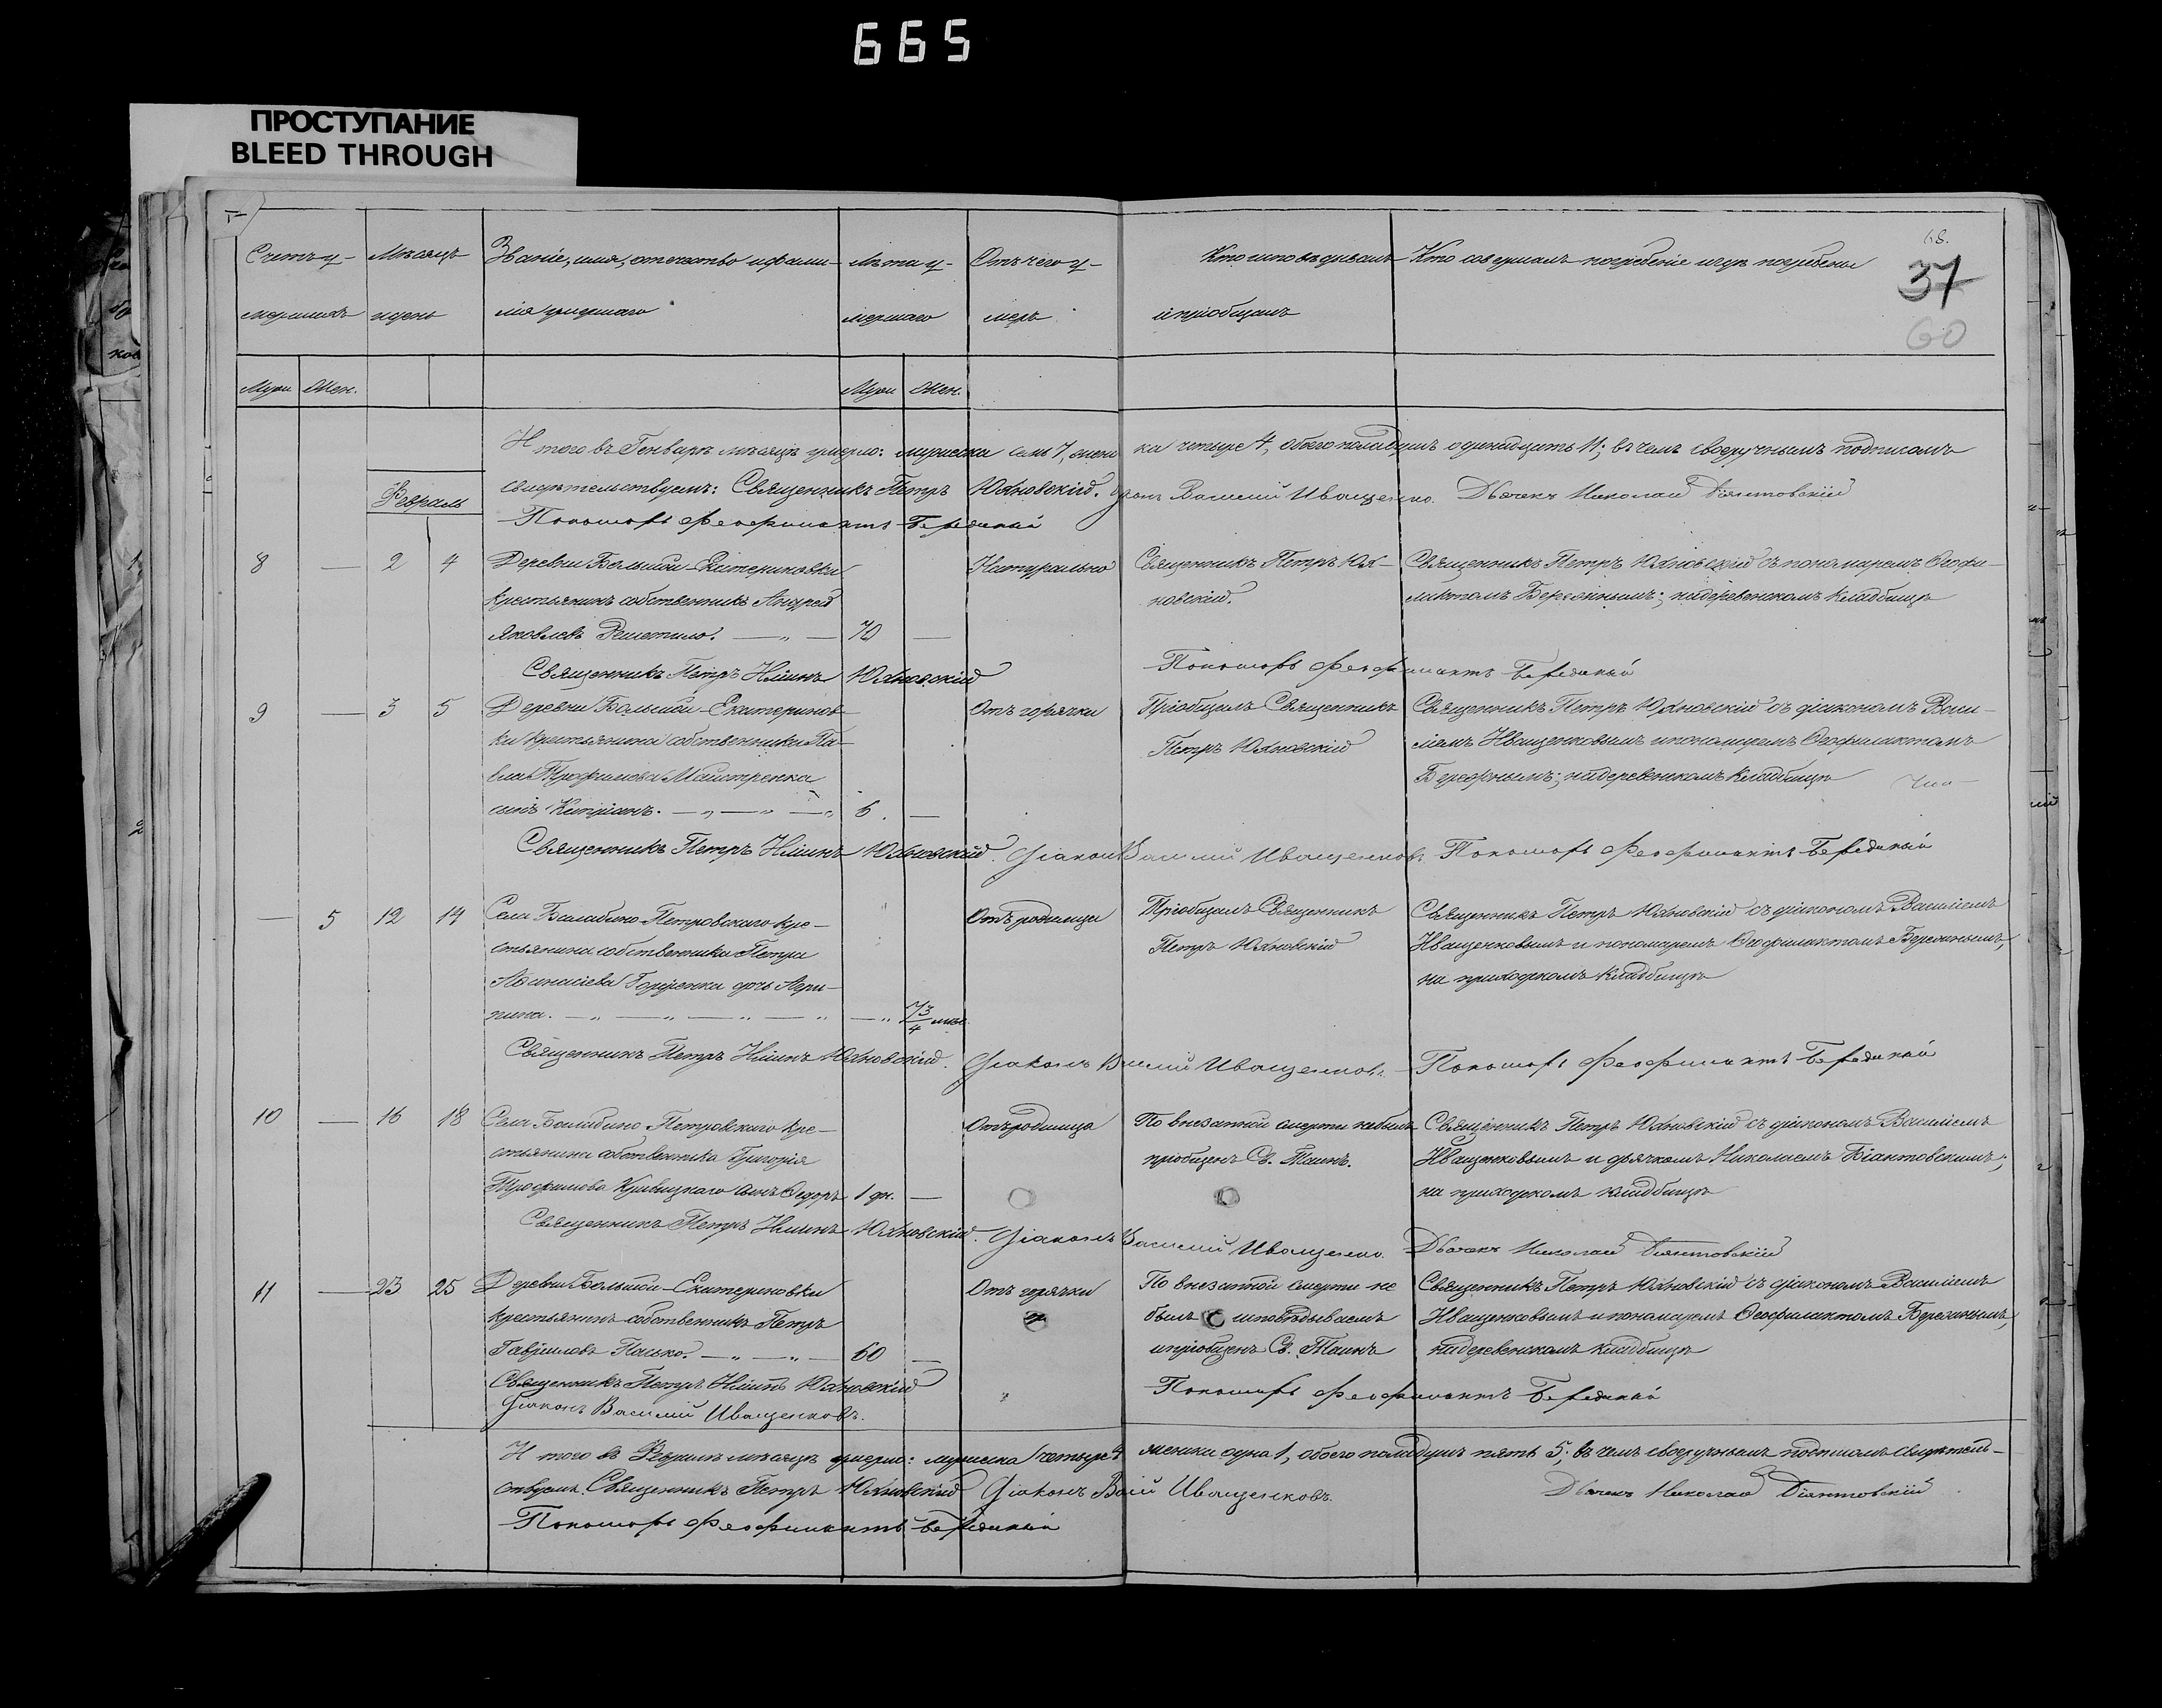 665
ПРОСТУПАНИЕ
BLEED THROUGH
Счетъ у-
мершихъ
Мѣсяцъ
и день
Званіе, имя, отечество и фами-
лія умершаго
Лѣта у-
мершаго
Отъ чего у-
меръ
Кто исповѣдывалъ
и пріобщалъ
Кто совершалъ погребеніе и гдѣ погребены
68.
37
60
Муж Жен.
Муж Жен.
Итого въ Генварѣ мѣсяцѣ умерло: мужеска семь 7, женска четыре 4, обоего пола душъ одинадцать 11; въ чемъ своеручнымъ подписомъ
свидѣтельствуемъ: Священникъ Петръ Юхновскій. Діаконъ Василий Иващенко. Дьячекъ Николай Біянтовскій
Пономарь Феофилактъ Бережный
Февраль
8 — 2 4
Деревни Большой-Екатериновки
крестьянинъ собственникъ Андрей
Яковлевъ Решетило. — „ — 70 —
Натурально
Священникъ Петръ Юх-
новскій.
Священникъ Петръ Юхновскій съ пономаремъ Ѳеофи-
лактомъ Бережнымъ; на деревенскомъ кладбищѣ
Священникъ Петръ Юхновскій
Пономарь Феофилактъ Бережный
9 — 3 5
Деревни Большой-Екатеринов-
ки крестьянина собственника Па-
вла Трофимова Майстренка
сынъ Кипріанъ. — „ — „ — „ 6. —
Отъ горячки
Пріобщалъ Священникъ
Петръ Юхновскій
Священникъ Петръ Юхновскій съ діакономъ Васи-
ліемъ Иващенковымъ и пономаремъ Ѳеофилактомъ
Бережнымъ; на деревенскомъ кладбищѣ
Священникъ Петръ Юхновскій. Діаконъ Василий Иващенковъ. Пономарь Феофилактъ Бережный
— 5 12 14
Села Балабино-Петровскаго кре-
стьянина собственника Петра
Аѳанасіева Гордіенка дочь Агри-
пина. — „ — „ — „ — „ — „ 7 3/4 мѣс.
Отъ родимца
Пріобщалъ Священникъ
Петръ Юхновскій
Священникъ Петръ Юхновскій съ діакономъ Василіемъ
Иващенковымъ и пономаремъ Ѳеофилактомъ Бережнымъ,
на приходскомъ кладбищѣ
Священникъ Петръ Юхновскій. Діаконъ Василий Иващенковъ. Пономарь Феофилактъ Бережный
10 — 16 18
Села Балабино-Петровскаго кре-
стьянина собственника Григорія
Трофимова Кривицкаго сынъ Ѳедоръ 1 дн. —
Отъ родимца
По внезапной смерти не былъ
пріобщенъ Св. Таинъ.
Священникъ Петръ Юхновскій съ діакономъ Василіемъ
Иващенковымъ и дьячкомъ Николаемъ Біантовскимъ;
на приходскомъ кладбищѣ
Священникъ Петръ Юхновскій. Діаконъ Василий Иващенко. Дьячекъ Николай Біянтовскій
11 — 23 25
Деревни Большой-Екатериновки
крестьянинъ-собственникъ Петръ
Гавріиловъ Панько. — „ — „ — 60 —
Отъ горячки
По внезапной смерти не
былъ исповѣдываемъ
и пріобщенъ Св. Таинъ
Священникъ Петръ Юхновскій съ діакономъ Василіемъ
Иващенковымъ и пономаремъ Ѳеофилактомъ Бережнымъ,
на деревенскомъ кладбищѣ
Священникъ Петръ Юхновскій
Діаконъ Василий Иващенковъ.
Пономарь Феофилактъ Бережный
Итого въ Февралѣ мѣсяцѣ умерло: мужеска четыре 4 женска одна 1, обоего пола душъ пять 5; въ чемъ своеручнымъ подписомъ свидѣтель-
ствуемъ. Священникъ Петръ Юхновскій Діаконъ Василий Иващенковъ. Дьячекъ Николай Біянтовскій
Пономарь Феофилактъ Бережный